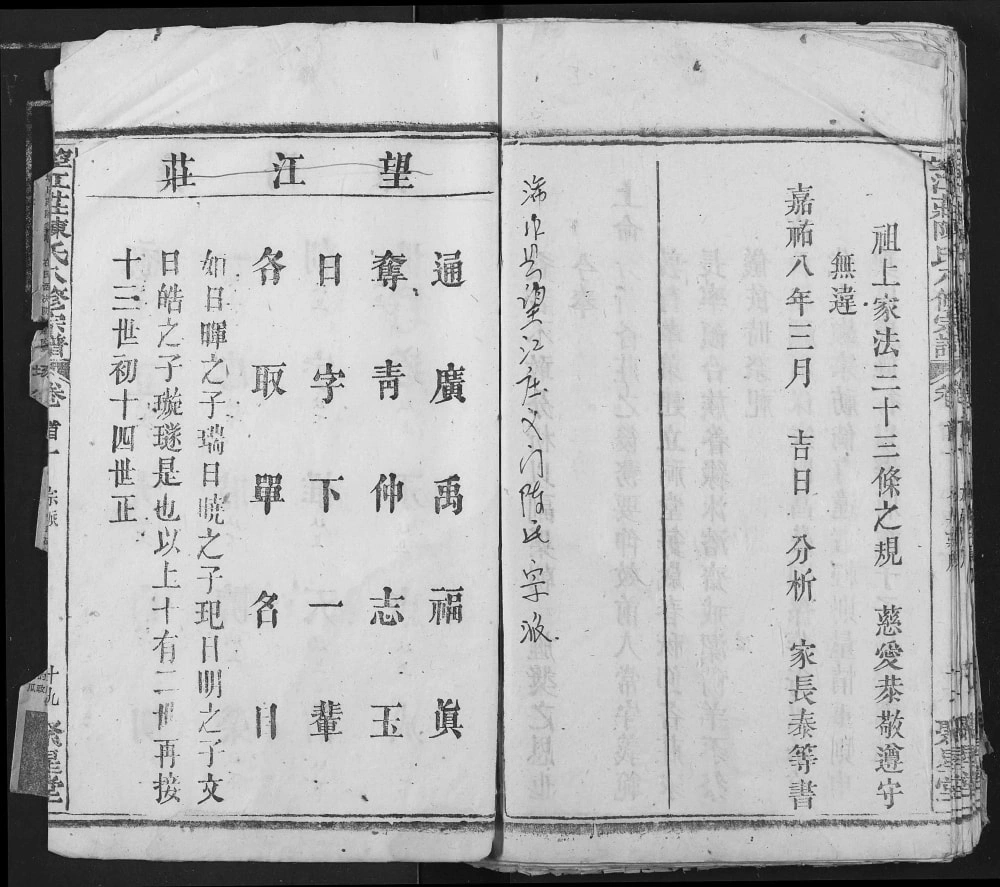 祖上家法三十三條之規　慈愛恭敬遵守
無違
嘉祐八年三月　吉日　分析　家長泰等書
望江庄义门陈氏字派
望江莊
通廣禹福眞
奪青仲志玉
日字下一輩
各取單名目
如日暉之子瑞日曉之子玘日明之子文
日皓之子璇璲是也以上十有二世再接
十三世初十四世正
望江莊陳氏八修宗譜
卷首一
十九
聚星堂